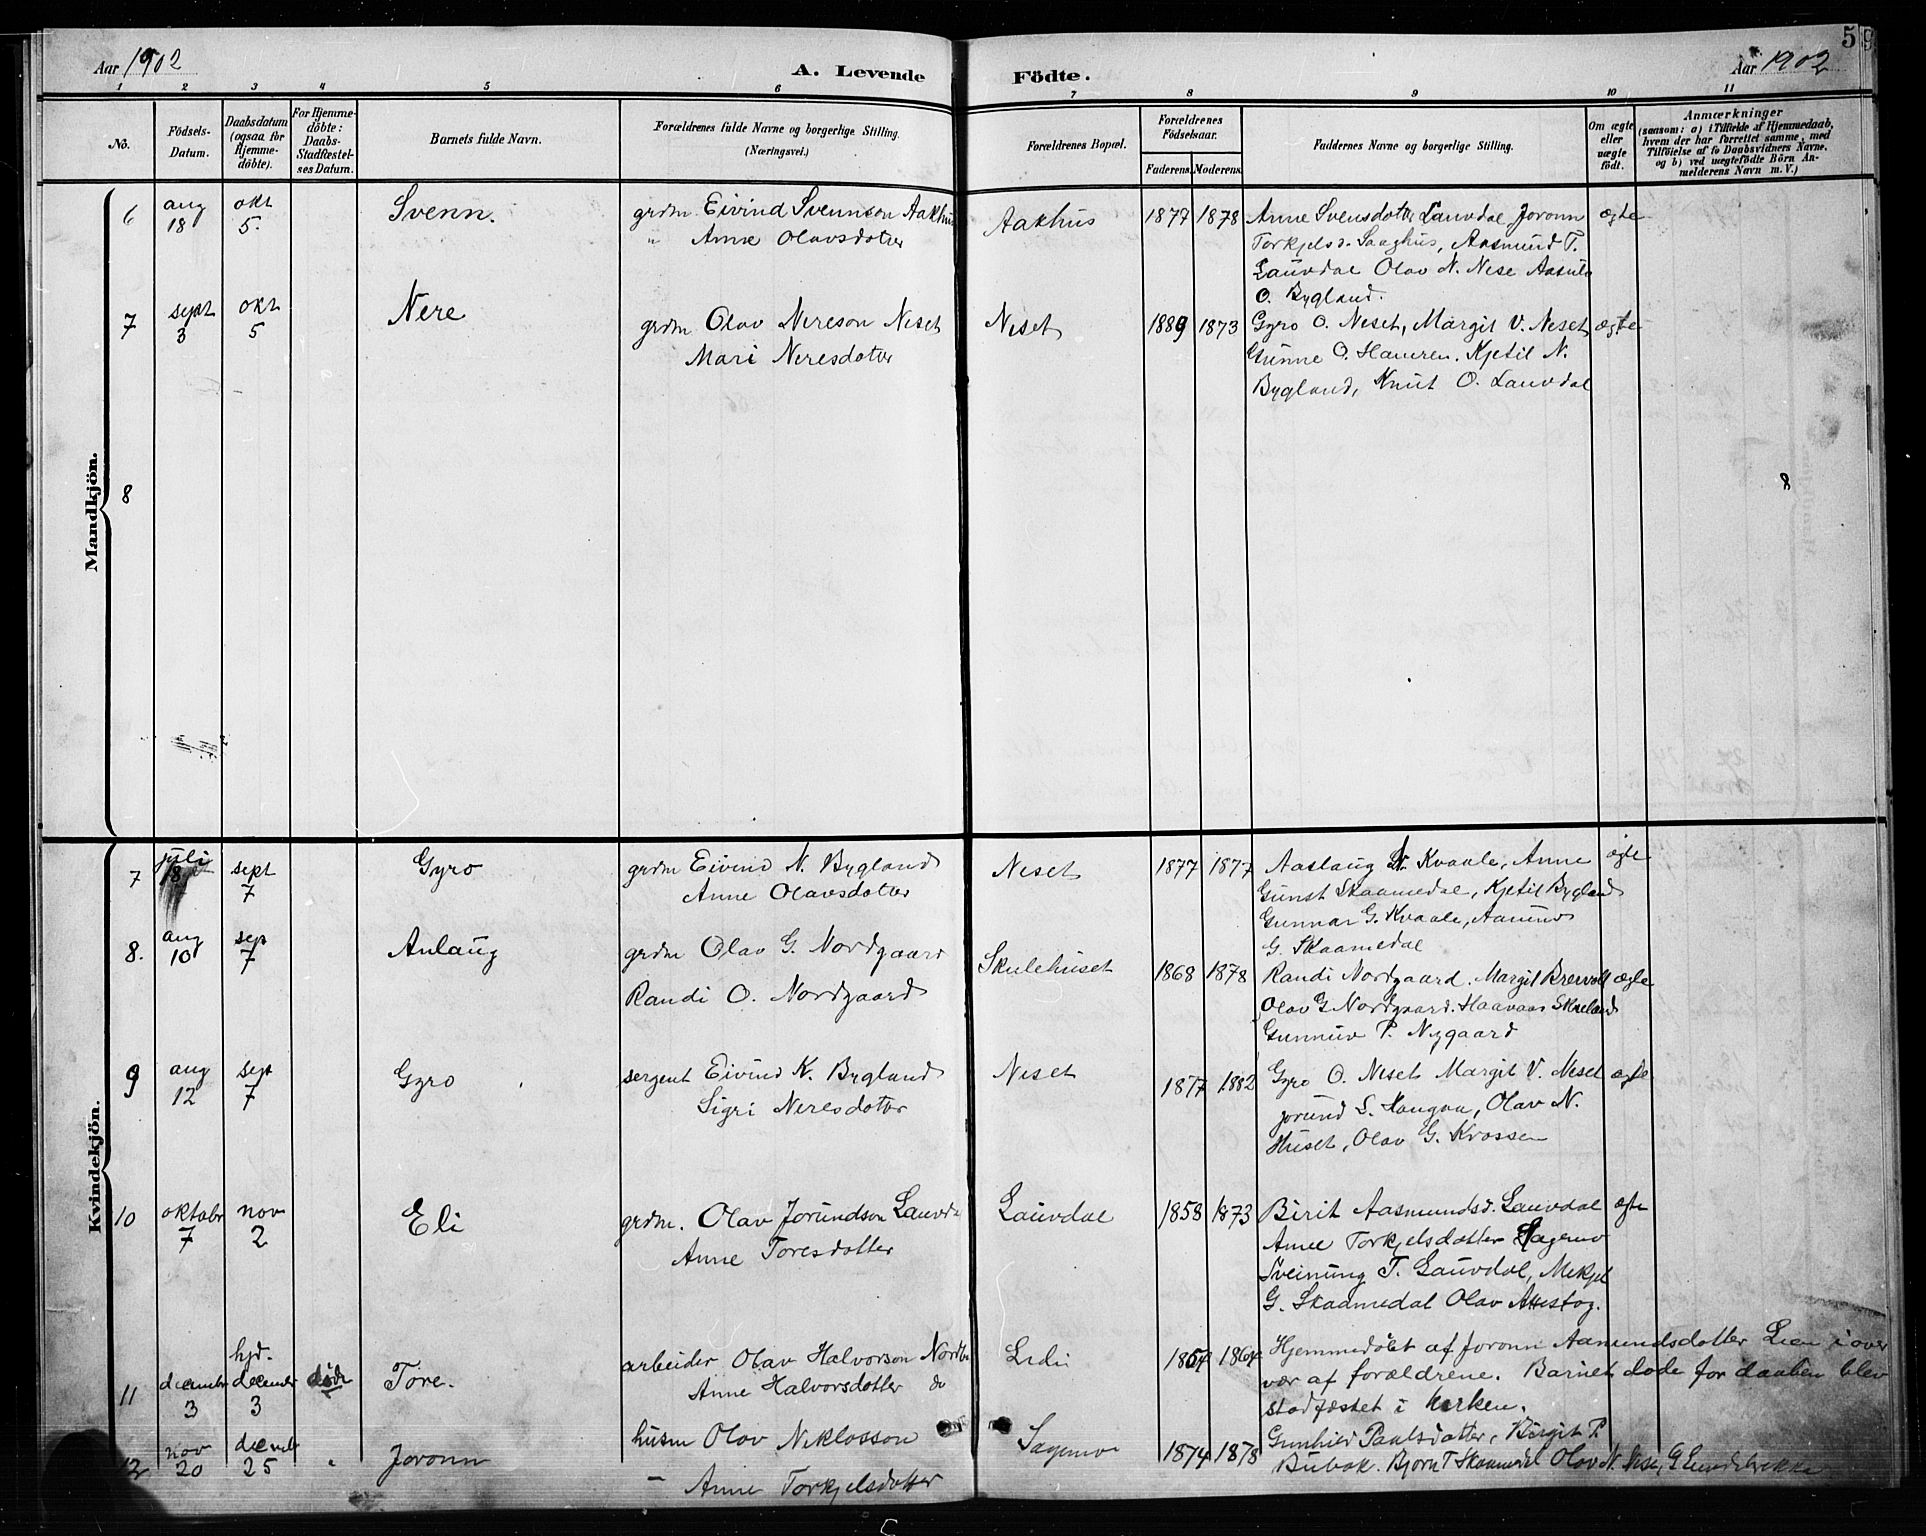 Aar 1902
A. Levende Födte.
Aar 1902
59
1 2 3 4 5 6 7 8 9 10 11
No.
Födsels-Datum.
Daabsdatum (ogsaa for Hjemme-döbte).
For Hjemme-döbte: Daabs-Stadfæstel-ses Datum.
Barnets fulde Navn.
Forældrenes fulde Navne og borgerlige Stilling. (Næringsvei.)
Forældrenes Bopæl.
Forældrenes Födselsaar.
Faderens. Moderens.
Faddernes Navne og borgerlige Stilling.
Om ægte eller uægte födt.
Anmærkninger
(saasom: a) i Tilfælde af Hjemmedaab, hvem der har forrettet samme, med Tilföielse af to Daabsvidners Navne, og b) ved uægtefödte Börn An-melderens Navn m. V.)
Mandkjön.
6 aug 18 okt 5. Svenn. grdm Eivind Svennson Aakhus Aakhus 1877 1878 Anne Svensdotter Lauvdal Joronn ægte
" Anne Olavsdotter Torkjelsd. Saaghus, Aasmund T.
Lauvdal Olav N. Nese Aasulv
O. Bygland.
7 sept 3 okt 5 Nere grdm Olav Nereson Neset Neset 1889 1873 Gyro O. Neset, Margit V. Neset ægte
Mari Neresdotter Gunne O. Hameren. Kjetil N.
Bygland, Knut O. Lauvdal
8 8
Kvindekjön.
7 juli 18 sept 7 Gyro grdm Eivind N. Bygland Neset 1877 1877 Aaslaug N. Kvaale, Anne ægte
Anne Olavsdotter Gunst Skaamedal, Kjetil Bygland
Gunnar G. Kvaale, Aamund
G. Skaamedal
8. aug 10 sep 7 Anlaug grdm Olav G. Nordgaard Skulehuset 1868 1878 Randi Nordgaard. Margit ægte
Randi O. Nordgaard Olav G. Nordgaard. Haavaas
P. Nygaard
9 aug 12 sep 7 Gyro sergent Eivind K. Bygland Neset 1877 1882 Gyro O. Neset Margit V. Neset ægte
Sigri Neresdotter Jorund S. Haugaa, Olav N.
Huset, Olav G. Krossen
10 oktober 7 nov 2 Eli grdm. Olav Jorundson Lauvdal Lauvdal 1858 1873 Birit Aasmundsd. Lauvdal ægte
Anne Toresdotter Anne Torkjelsdotter
Sveinung T. Lauvdal, Mekjel
G. Skaamedal Olav
11 december 3 hjd. december 3 död Tore. arbeider Olav Halvorson Lidi 1864 Hjemmedöbt af Joronn Aamundsdotter Lien i over
Anne Halvorsdotter do vær af forældrene. Barnet döde for daaben blev
stadfæstet i kirken.
12 nov 20 25 Joronn husm Olav Niklosson 1874 1878 Gunhild Paulsdotter, Birgit P.
" Anne Torkjelsdotter Bjorn T Skaamedal Olav N. Nese,